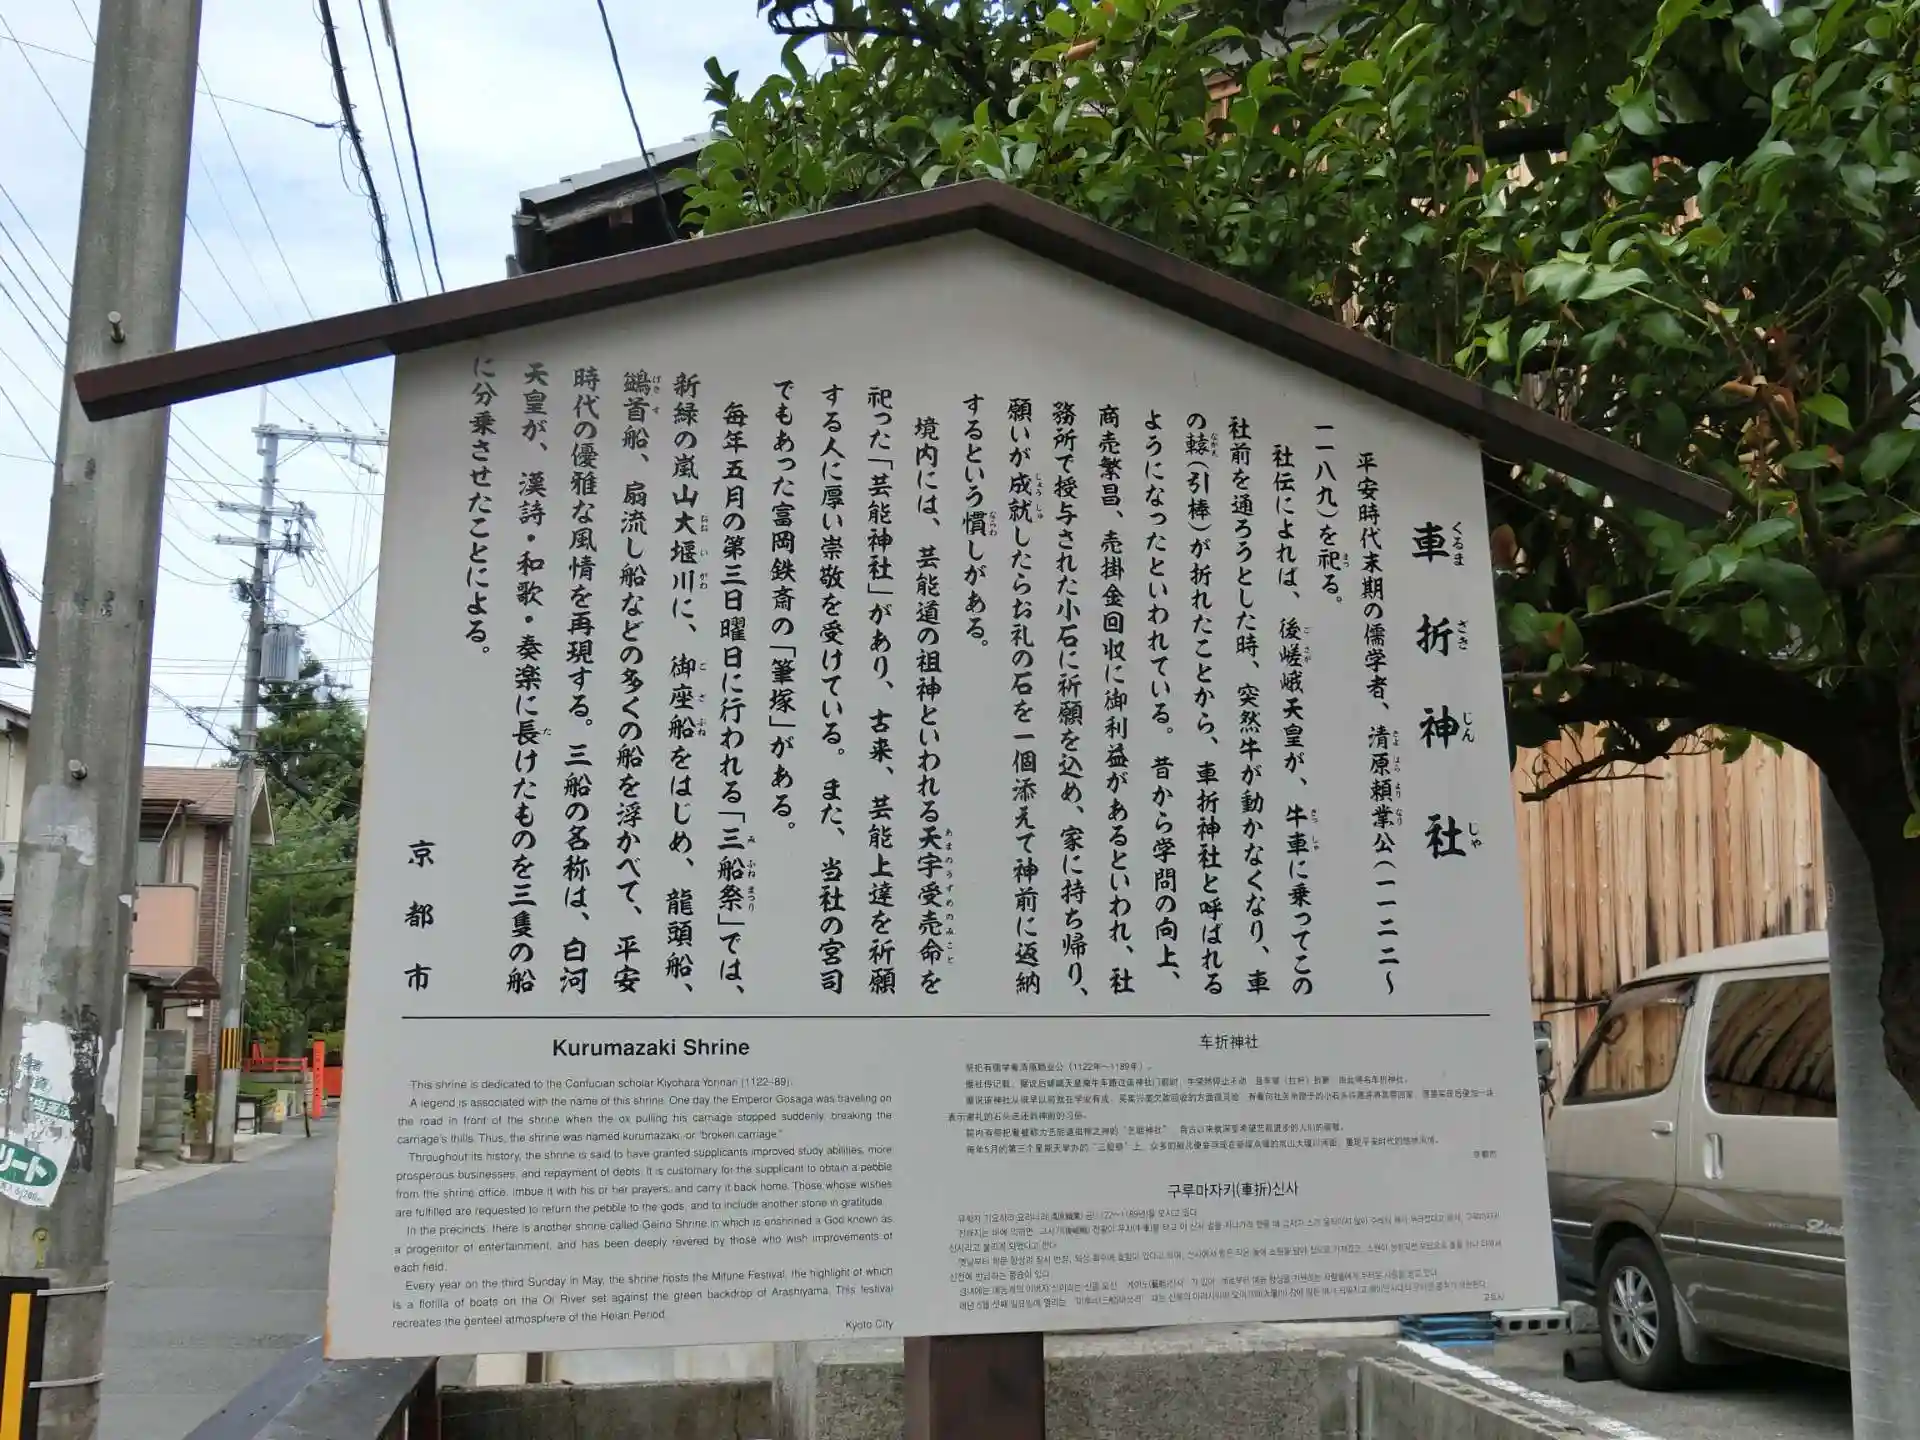 車折神社
くるま ざき じん じゃ
平安時代末期の儒学者、清原頼業公(一一二二~
一一八九)を祀る。
社伝によれば、後嵯峨天皇が、牛車に乗ってこの
社前を通ろうとした時、突然牛が動かなくなり、車
の轅(引棒)が折れたことから、車折神社と呼ばれる
ようになったといわれている。昔から学問の向上、
商売繁昌、売掛金回収に御利益があるといわれ、社
務所で授与された小石に祈願を込め、家に持ち帰り、
願いが成就したらお礼の石を一個添えて神前に返納
するという慣しがある。
境内には、芸能道の祖神といわれる天宇受売命を
祀った「芸能神社」があり、古来、芸能上達を祈願
する人に厚い崇敬を受けている。また、当社の宮司
でもあった富岡鉄斎の「筆塚」がある。
毎年五月の第三日曜日に行われる「三船祭」では、
新緑の嵐山大堰川に、御座船をはじめ、龍頭船、
鷁首船、扇流し船などの多くの船を浮かべて、平安
時代の優雅な風情を再現する。三船の名称は、白河
天皇が、漢詩・和歌・奏楽に長けたものを三隻の船
に分乗させたことによる。
京都市
Kurumazaki Shrine
This shrine is dedicated to the Confucian scholar Kiyohara Yorinari (1122-89).
A legend is associated with the name of this shrine. One day the Emperor Gosaga was traveling on
the road in front of the shrine when the ox pulling his carriage stopped suddenly, breaking the
carriage's thills. Thus, the shrine was named kurumazaki, or "broken carriage."
Throughout its history, the shrine is said to have granted supplicants improved study abilities, more
prosperous businesses, and repayment of debts. It is customary for the supplicant to obtain a pebble
from the shrine office, imbue it with his or her prayers, and carry it back home. Those whose wishes
are fulfilled are requested to return the pebble to the gods, and to include another stone in gratitude.
In the precincts, there is another shrine called Geino Shrine in which is enshrined a God known as
a progenitor of entertainment, and has been deeply revered by those who wish improvements of
each field.
Every year on the third Sunday in May, the shrine hosts the Mifune Festival, the highlight of which
is a flotilla of boats on the Oi River set against the green backdrop of Arashiyama. This festival
recreates the genteel atmosphere of the Heian Period.
Kyoto City
车折神社
구루마자키(車折)신사